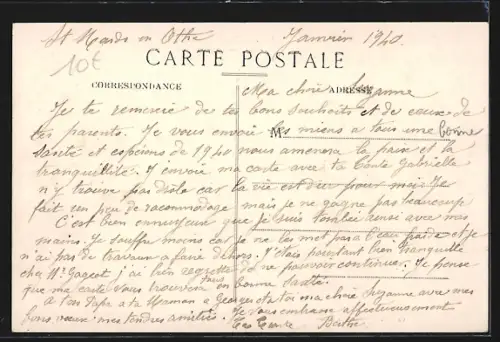 St Mards en Othe Janvier 1940.
10€
CARTE POSTALE
CORRESPONDANCE
ADRESSE
Ma chère Suzanne
Je te remercie de tes bons souhaits et de ceux de
tes parents. Je vous envoie les miens a tous une bonne
M
santé et espérons que 1940 nous amenera la paix et la
tranquillité. J'envoie ma carte avec ta Tante Gabrielle
n'y trouve pas drôle car la vie est dur pour moi. Je
fait un peu de racommodage mais je ne gagne pas beaucoup
C'est bien ennuyeux que je suis tombée ainsi avec mes
mains. Je souffre moins car je ne les met pas a l'eau froide et je
n'ai pas de travaux a faire dehors. J'étais pourtant bien tranquille
chez Mr Gageot j'ai bien regretté de ne pouvoir continuer. Je pense
que ma carte vous trouvera tous en bonne santé.
A ton Papa a ta Maman a Georges et a toi ma chère Suzanne avec mes
bons vœux mes tendres amitiés. Je vous embrasse affectueusement
Ta Tante Berthe